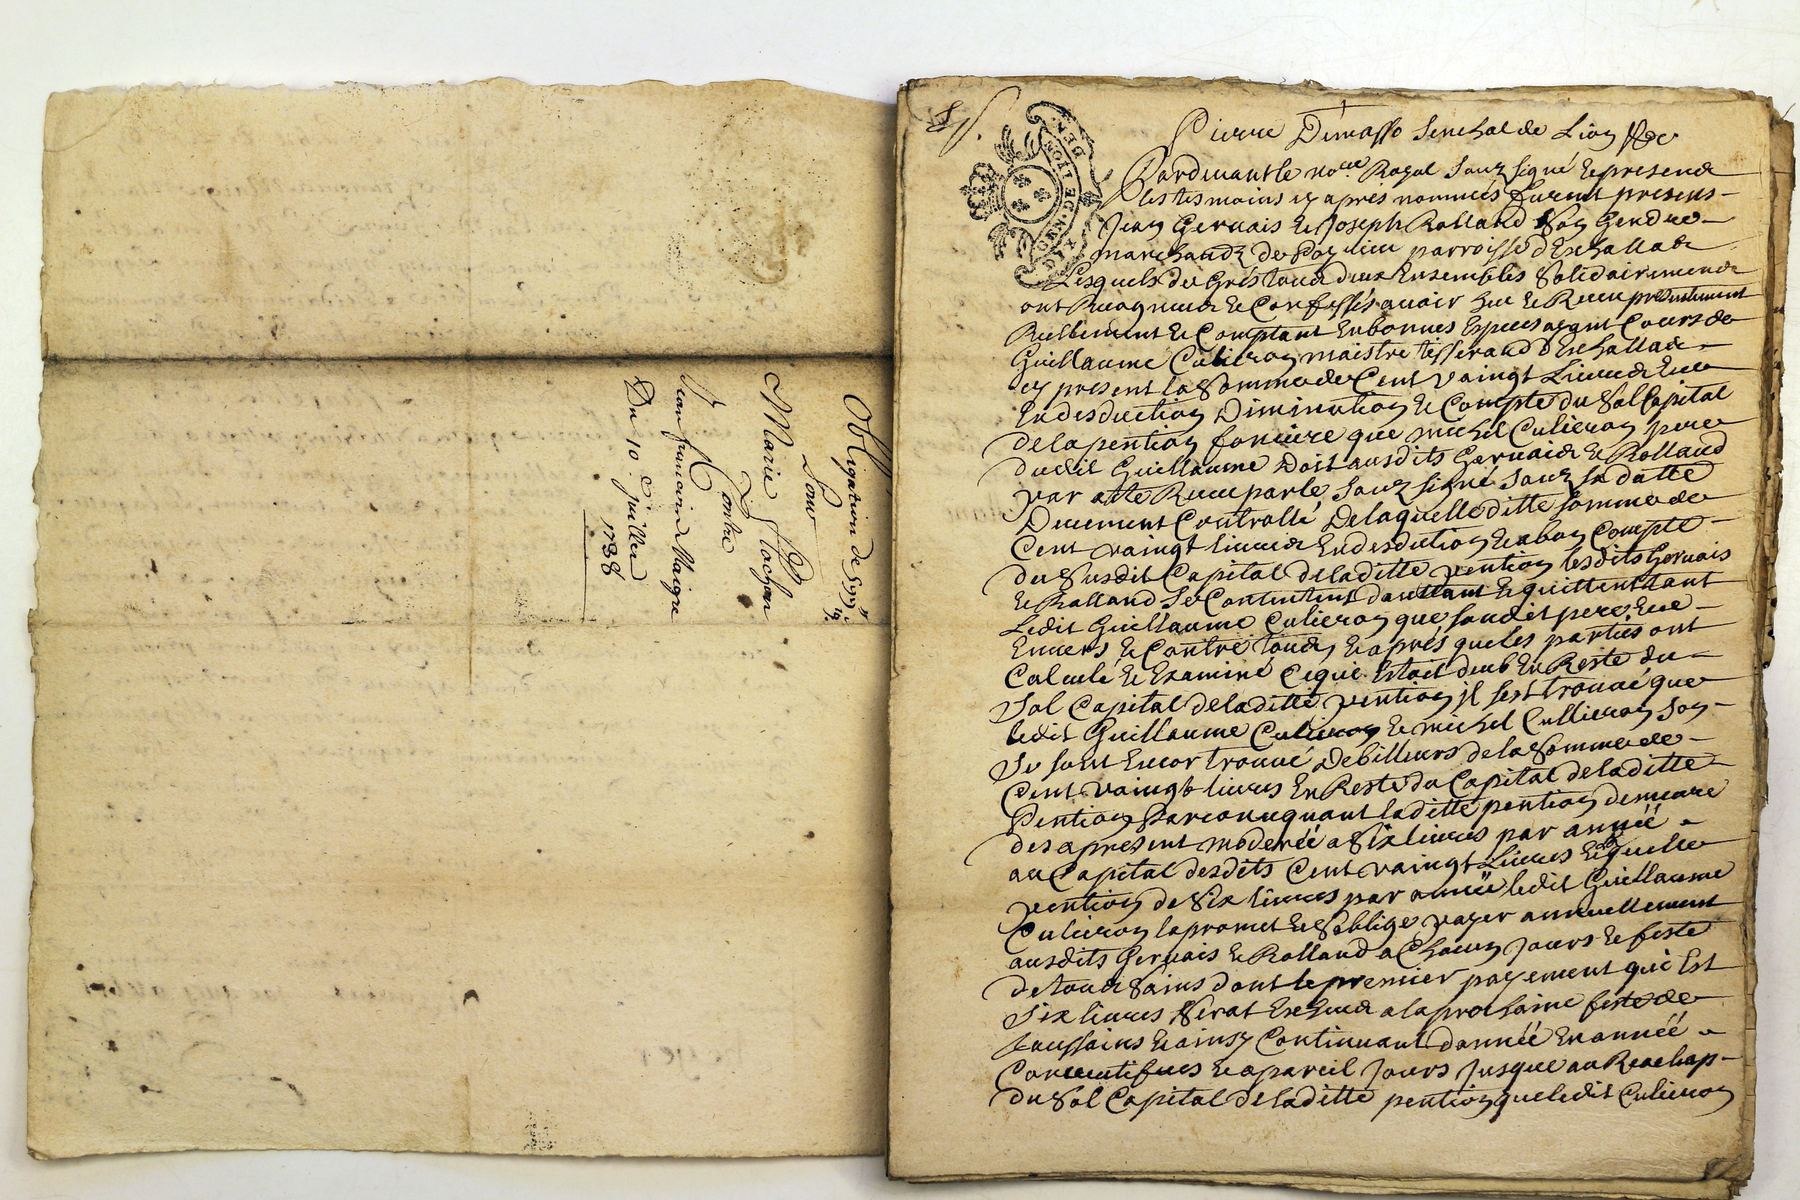 Obligation de 599ᵗᵗ 19ˢ.
Pour
Marie Flachon
Contre
Jean francois Maigre
Du 10. Juillet 1788
DEUX. S. GEN. DE LYON. GEN.
Pierre Demasso Senehal de Lion &c
Pardevant le noᵗʳᵉ Royal Souz signé Et presende
les tesmoins cy aprés nommés furent presens
Jean Gervais Et Joseph Rolland Son Gendre
marchands de parroisse d'Exhallade
Lesquels de Grés Toud deux Ensembles Solidairement
ont Recogneud Et Confessés avoir Heu Et Receu presentement
Reellement Et Comptant En bonnes Especes ayant Cours de
Guillaume Culieron maistre tisserand d'Exhallade
cy present la Somme de Cent vaingt Livres Et ce
En desduction Diminution Et Compte du Sol Capital
de la pention fonciere que michel Culieron pere
dudit Guillaume Doit ausdits Gervais Et Rolland
par acte Receu par le Souz signé Souz sa datte
Deuement Controllé De laquelle ditte somme de
Cent vaingt livres En desdution Et a bon Compte
du Susdit Capital de laditte pention lesdits Gervais
Et Rolland Se Contentent Et quittent tant
Ledit Guillaume Culieron que sondit pere Et ce
Envers Et Contre Toud, Et aprés que les parties ont
Calculé Et Examiné Ce qui Estoit deub En Reste du
Sol Capital de laditte pention jl sest trouvé que
ledit Guillaume Culieron Et michel Cullieron Son
Se sont Encor trouvé Debitteurs de la Somme de
Cent vaingt livres En Reste du Capital de laditte
Pention Parconcequant laditte pention demeure
des apresent moderéé a Six livres par annéé
au Capital desdits Cent vaingt Livres Laquelle
pention de Six livres par annéé ledit Guillaume
Culieron la promet Et Soblige payer annuellement
ausdits Gervais Et Rolland a Chacun Jours Et feste
de toud Sains dont le premier payement qui Est
Six livres Serat Excheud a la prochaine feste de
Toussains Et ainsy Continuant dannéé En annéé
Consecutifves Et a pareil Jours Jusque au Reachap
du Sol Capital de laditte pention que ledit Culieron